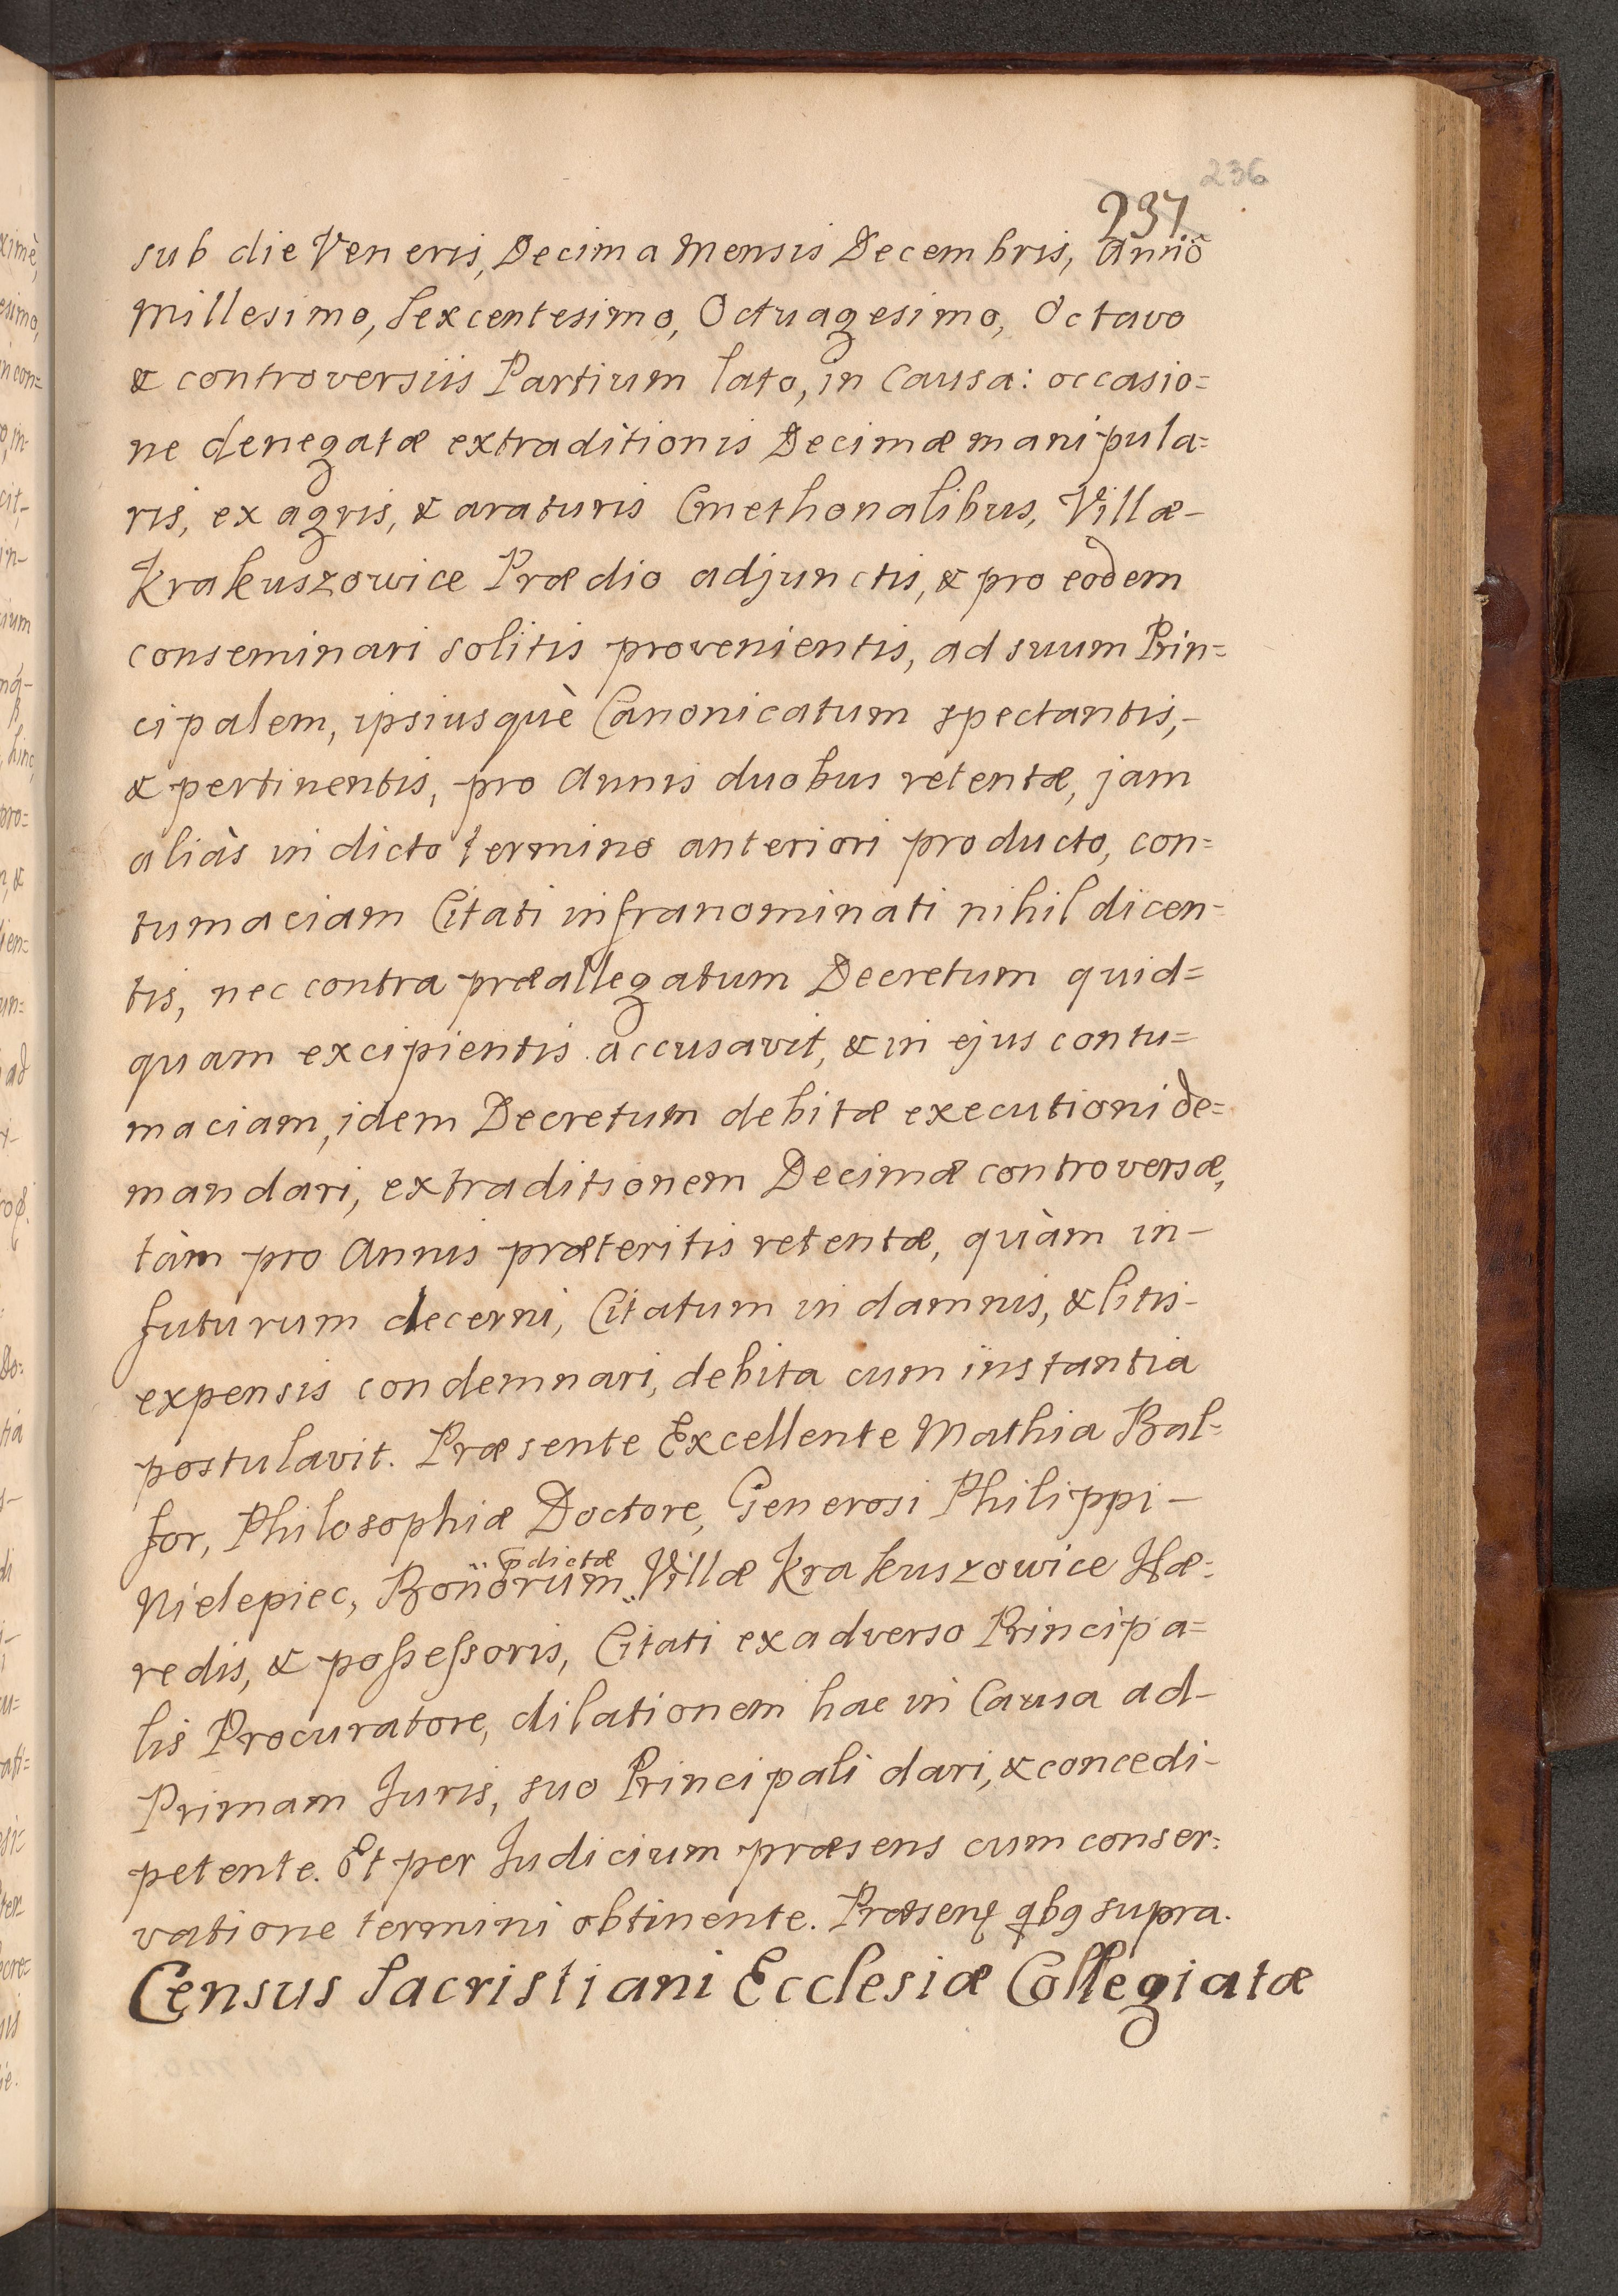 236
237
sub die Veneris, Decima Mensis Decembris, Anno
Millesimo, Sexcentesimo, Octuagesimo, Octavo
& controversiis Partium lato, in Causa: occasio=
ne denegatæ extraditionis Decimæ manipula=
ris, ex agris, & araturis Cmethonalibus, Villæ-
Krakuszowice Prædio adjunctis, & pro eodem
conseminari solitis provenientis, ad suum Prin=
cipalem, ipsiusquè Canonicatum spectantis,-
& pertinentis, pro Annis duobus retentæ, jam
aliàs in dicto termino anteriori producto, con=
tumaciam Citati infranominati nihil dicen=
tis, nec contra præallegatum Decretum quid=
quam excipientis accusavit, & in ejus contu=
maciam, idem Decretum debitæ executioni de=
mandari, extraditionem Decimæ controversæ,
tàm pro Annis præteritis retentæ, quàm in-
futurum decerni, Citatum in damnis, & litis-
expensis condemnari, debita cum instantia
postulavit. Præsente Excellente Mathia Bal=
for, Philosophiæ Doctore, Generosi Philippi-
pdictæ
Nielepiec, Bonorum Villæ Krakuszowice Hæ=
redis, & possessoris, Citati ex adverso Principa=
lis Procuratore, dilationem hac in Causa ad-
Primam Juris, suo Principali dari, & concedi-
petente. Et per Judicium præsens cum conser=
vatione termini obtinente. Præsenę qbg supra.
Census Sacristiani Ecclesiæ Collegiatæ